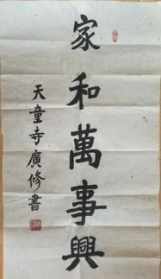 家和萬事興
天童寺廣修書